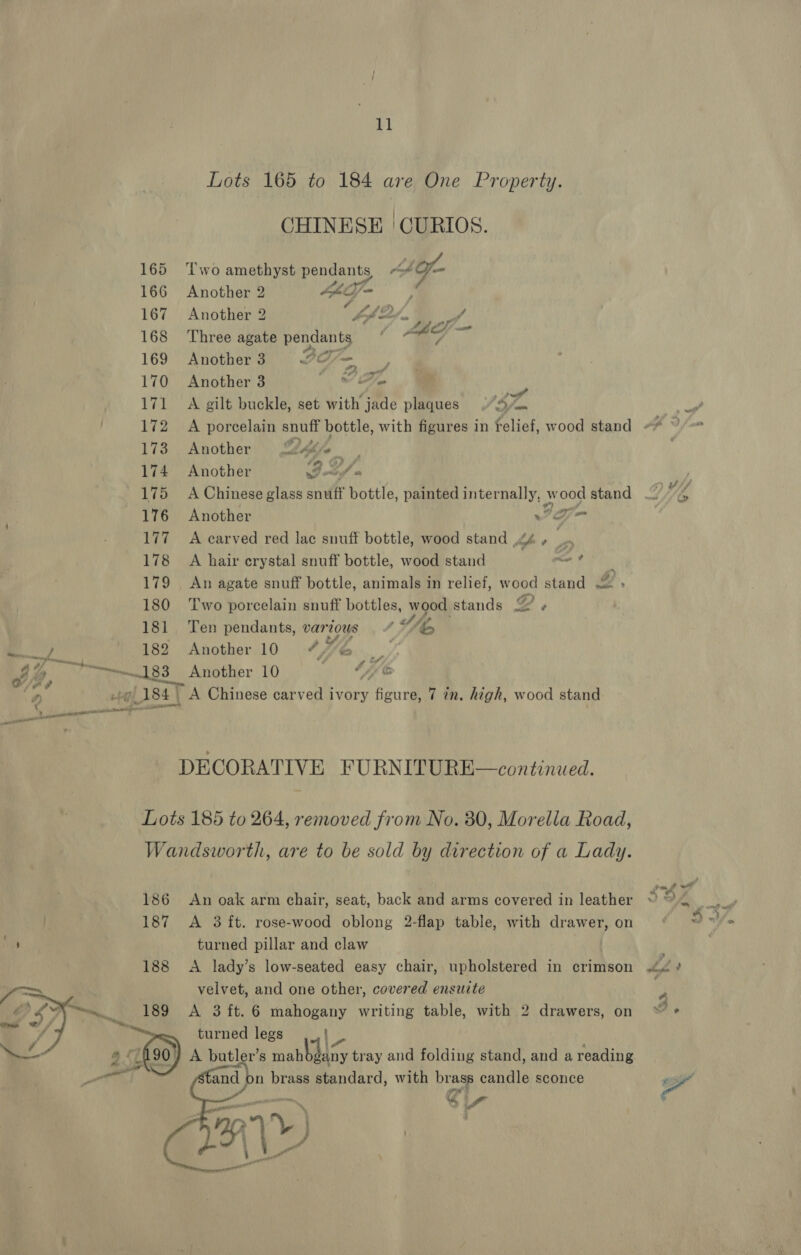 11
Lots 165 to 184 are One Property.
CHINESE CURIOS.
165 Two amethyst pendants
166 Another 2
167 Another 2
168 Three agate pendants
169 Another 3
170 Another 3
171 A gilt buckle, set with jade plaques
172 A porcelain snuff bottle, with figures in relief, wood stand
173 Another
174 Another
175 A Chinese glass snuff bottle, painted internally, wood stand
176 Another
177 A carved red lac snuff bottle, wood stand
178 A hair crystal snuff bottle, wood stand
179 An agate snuff bottle, animals in relief, wood stand
180 Two porcelain snuff bottles, wood stands
181 Ten pendants, various
182 Another 10
183 Another 10
184 A Chinese carved ivory figure, 7 in. high, wood stand
DECORATIVE FURNITURE—continued.
Lots 185 to 264, removed from No. 30, Morella Road,
Wandsworth, are to be sold by direction of a Lady.
186 An oak arm chair, seat, back and arms covered in leather
187 A 3 ft. rose-wood oblong 2-flap table, with drawer, on
turned pillar and claw
188 A lady's low-seated easy chair, upholstered in crimson
velvet, and one other, covered ensuite
189 A 3 ft. 6 mahogany writing table, with 2 drawers, on
turned legs
190 A butler's mahogany tray and folding stand, and a reading
stand on brass standard, with brass candle sconce